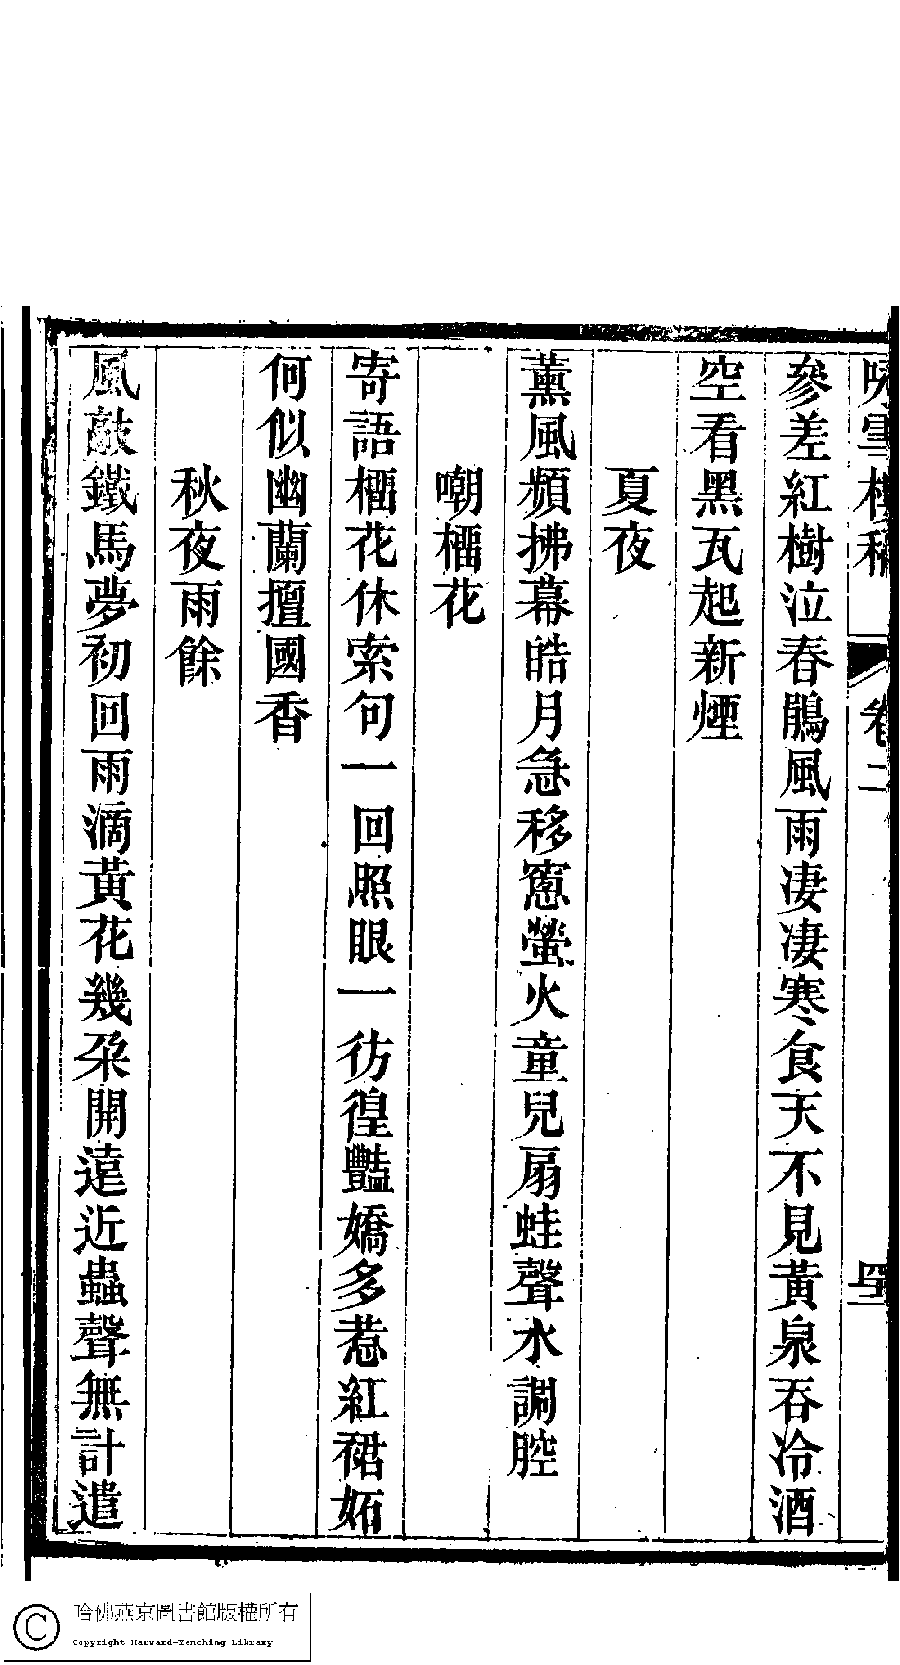 雪樓稿 卷二
參差紅樹泣春鵑風雨淒淒寒食天不見黃泉吞冷酒
空看黑瓦起新煙
夏夜
薰風頻拂幕皓月急移窻螢火童兒扇蛙聲水調腔
嘲橊花
寄語橊花休索句一回照眼一彷徨豔嬌多惹紅裙妬
何似幽蘭擅國香
秋夜雨餘
風敲鐵馬夢初回雨滴黃花幾朶開遠近蟲聲無計遣
哈佛燕京圖書館版權所有
Copyright Harvard-Yenching Library